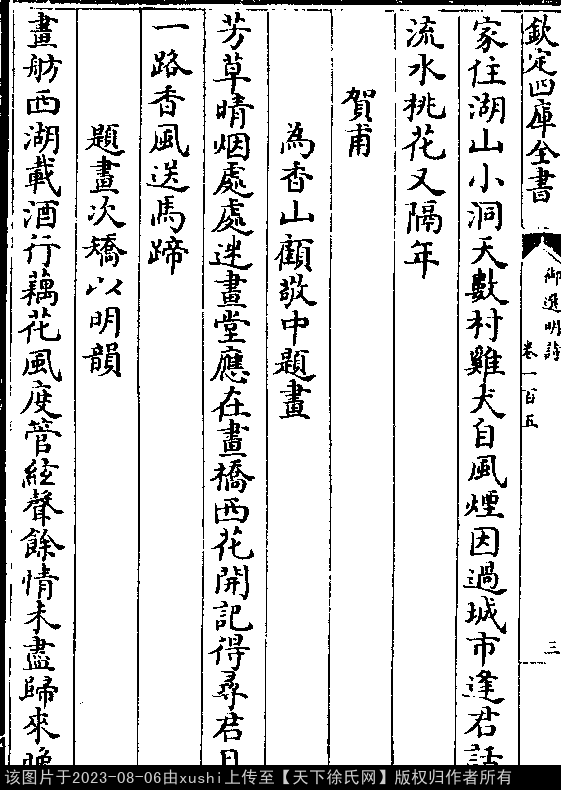 欽定四庫全書
御選明詩
卷一百五
三
家住湖山小洞天數村雞犬自風煙因過城市逢君話
流水桃花又隔年
賀甫
為香山顧敬中題畫
芳草晴烟處處迷畫堂應在畫橋西花開記得尋君日
一路香風送馬蹄
題畫次矯以明韻
畫舫西湖載酒行藕花風度管絃聲餘情未盡歸來晚
该图片于2023-08-06由xushi上传至【天下徐氏网】版权归作者所有